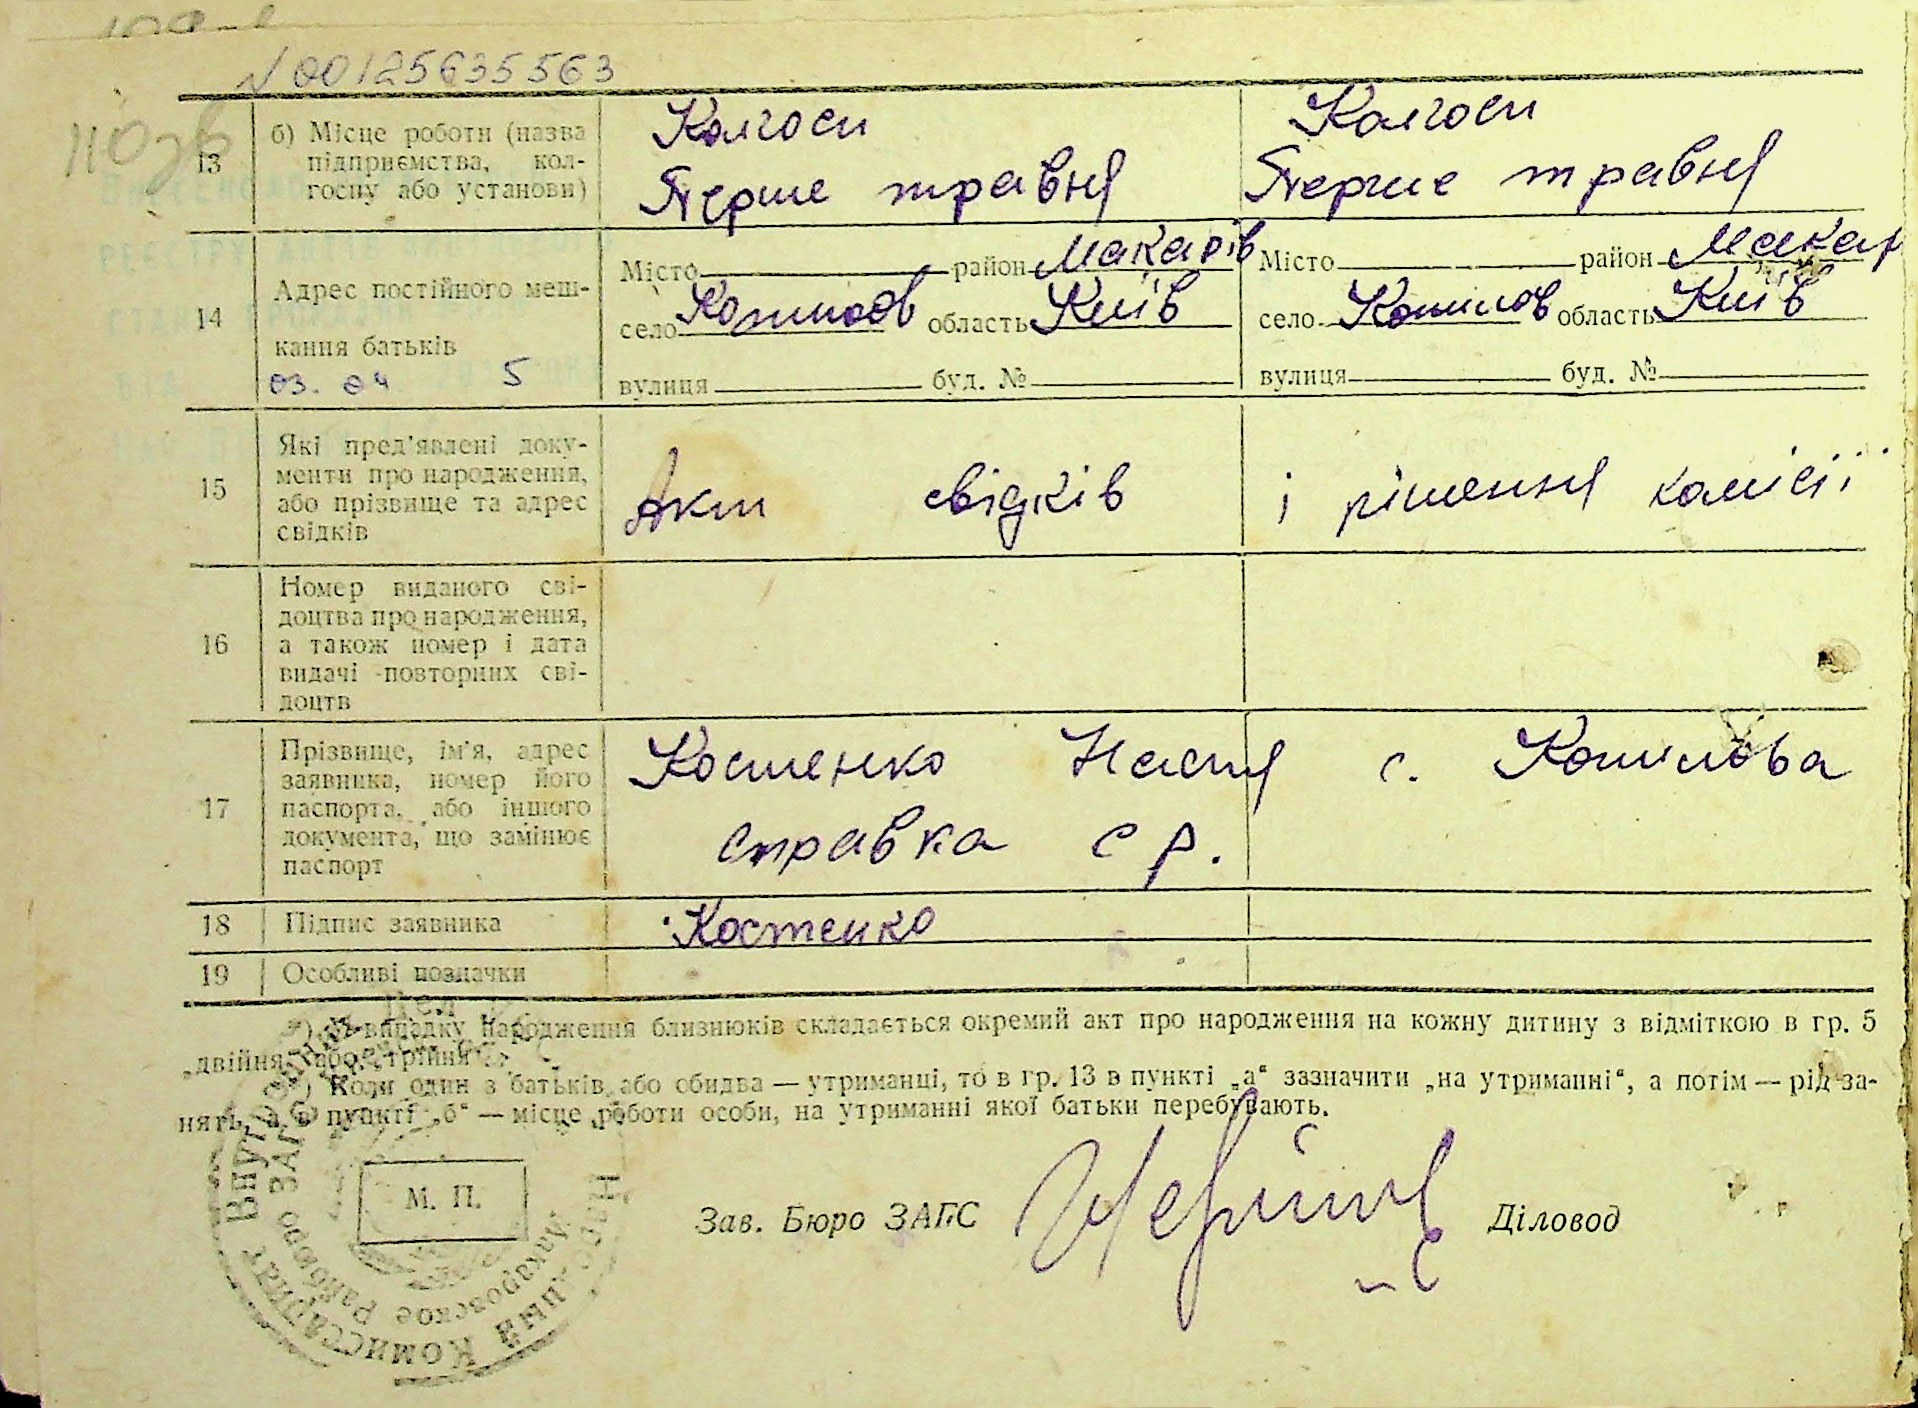 N 00125635563
13
б) Місце роботи (назва
підприємства, кол-
госпу або установи)
Колгосп
Перше травня
Колгосп
Перше травня
14
Адрес постійного меш-
кання батьків
03. 04 5
Місто район Макарів
село область Київ
вулиця буд. №
Місто район Макар
село Копилов область Київ
вулиця буд. №
15
Які пред'явлені доку-
менти про народження,
або прізвище та адрес
свідків
Акт свідків і рішення комісії
16
Номер виданого сві-
доцтва про народження,
а також номер і дата
видачі повторних сві-
доцтв
17
Прізвище, ім'я, адрес
заявника, номер його
паспорта, або іншого
документа, що замінює
паспорт
Костенко Настя с. Копилова
справка с р.
18 Підпис заявника
Костенко
19 Особливі позначки
*) У випадку народження близнюків складається окремий акт про народження на кожну дитину з відміткою в гр. 5
„двійня“ або „трійня“.
Коли один з батьків або обидва — утриманці, то в гр. 13 в пункті „а“ зазначити „на утриманні“, а потім — рід за-
нять, а в пункті „б“ — місце роботи особи, на утриманні якої батьки перебувають.
М. П.
Зав. Бюро ЗАГС
Діловод